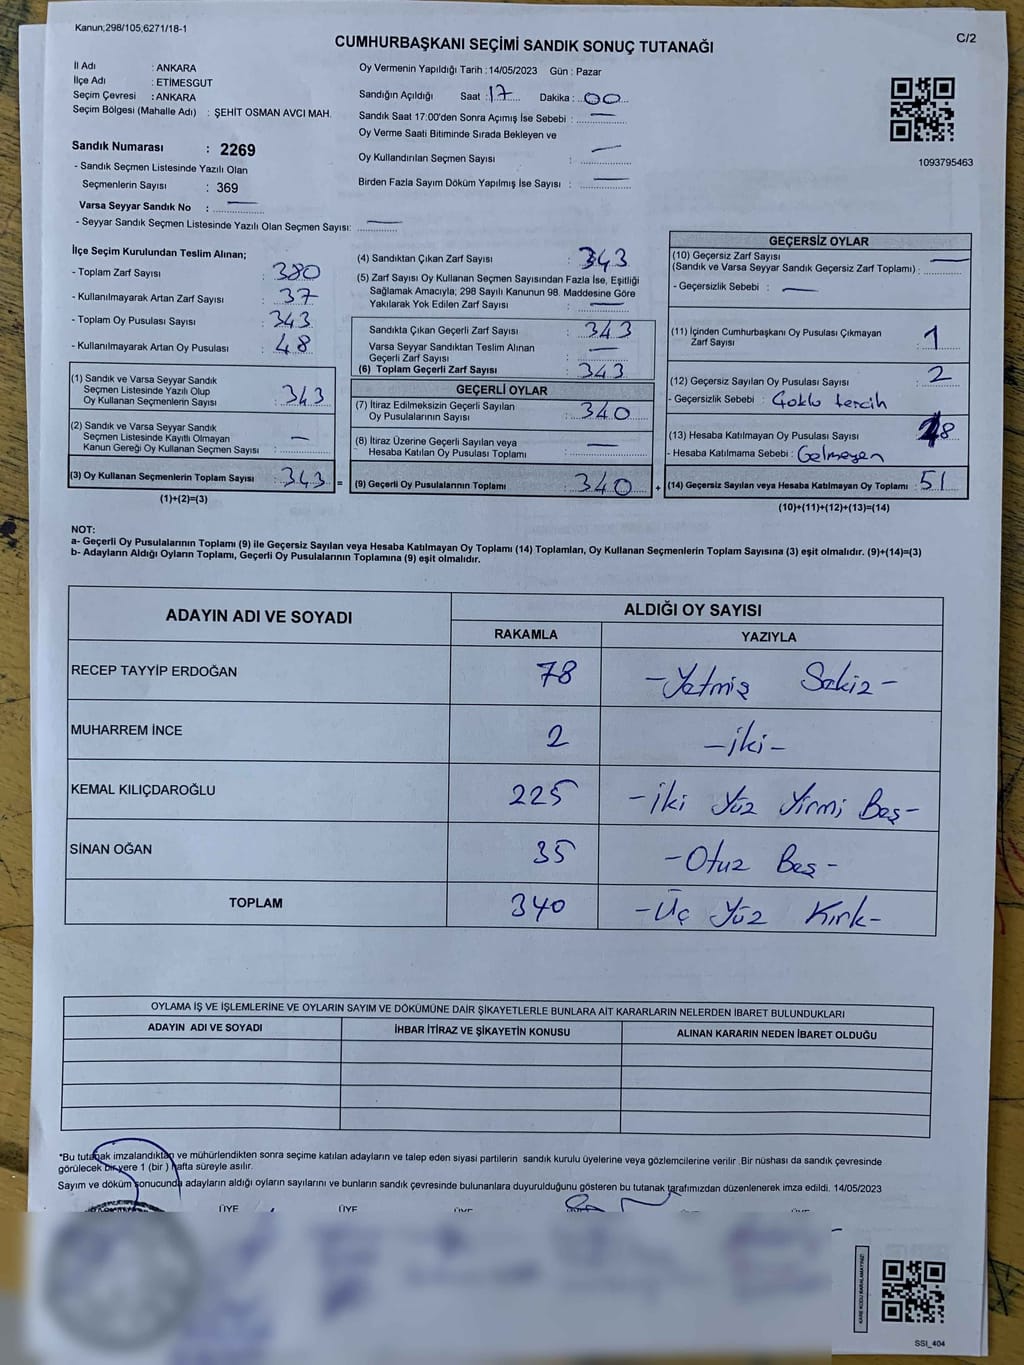 Kanun;298/105,6271/18-1
C/2
CUMHURBAŞKANI SEÇİMİ SANDIK SONUÇ TUTANAĞI
İl Adı : ANKARA
İlçe Adı : ETİMESGUT
Seçim Çevresi : ANKARA
Seçim Bölgesi (Mahalle Adı) : ŞEHİT OSMAN AVCI MAH.
Sandık Numarası : 2269
- Sandık Seçmen Listesinde Yazılı Olan
Seçmenlerin Sayısı : 369
Varsa Seyyar Sandık No : —
- Seyyar Sandık Seçmen Listesinde Yazılı Olan Seçmen Sayısı: —
Oy Vermenin Yapıldığı Tarih : 14/05/2023 Gün : Pazar
Sandığın Açıldığı Saat : 17 Dakika : 00
Sandık Saat 17:00'den Sonra Açımış İse Sebebi : —
Oy Verme Saati Bitiminde Sırada Bekleyen ve
Oy Kullandırılan Seçmen Sayısı : —
Birden Fazla Sayım Döküm Yapılmış İse Sayısı : —
1093795463
İlçe Seçim Kurulundan Teslim Alınan;
- Toplam Zarf Sayısı : 380
- Kullanılmayarak Artan Zarf Sayısı : 37
- Toplam Oy Pusulası Sayısı : 343
- Kullanılmayarak Artan Oy Pusulası : 48
(1) Sandık ve Varsa Seyyar Sandık
Seçmen Listesinde Yazılı Olup
Oy Kullanan Seçmenlerin Sayısı : 343
(2) Sandık ve Varsa Seyyar Sandık
Seçmen Listesinde Kayıtlı Olmayan
Kanun Gereği Oy Kullanan Seçmen Sayısı : —
(3) Oy Kullanan Seçmenlerin Toplam Sayısı : 343 =
(1)+(2)=(3)
(4) Sandıktan Çıkan Zarf Sayısı : 343
(5) Zarf Sayısı Oy Kullanan Seçmen Sayısından Fazla İse, Eşitliği
Sağlamak Amacıyla; 298 Sayılı Kanunun 98. Maddesine Göre
Yakılarak Yok Edilen Zarf Sayısı : —
Sandıkta Çıkan Geçerli Zarf Sayısı : 343
Varsa Seyyar Sandıktan Teslim Alınan
Geçerli Zarf Sayısı : —
(6) Toplam Geçerli Zarf Sayısı : 343
GEÇERLİ OYLAR
(7) İtiraz Edilmeksizin Geçerli Sayılan
Oy Pusulalarının Sayısı : 340
(8) İtiraz Üzerine Geçerli Sayılan veya
Hesaba Katılan Oy Pusulası Toplamı : —
(9) Geçerli Oy Pusulalarının Toplamı : 340 +
GEÇERSİZ OYLAR
(10) Geçersiz Zarf Sayısı
(Sandık ve Varsa Seyyar Sandık Geçersiz Zarf Toplamı) : —
- Geçersizlik Sebebi : —
(11) İçinden Cumhurbaşkanı Oy Pusulası Çıkmayan
Zarf Sayısı : 1
(12) Geçersiz Sayılan Oy Pusulası Sayısı : 2
- Geçersizlik Sebebi : Çoklu tercih
(13) Hesaba Katılmayan Oy Pusulası Sayısı : 48
- Hesaba Katılmama Sebebi : Gelmeyen
(14) Geçersiz Sayılan veya Hesaba Katılmayan Oy Toplamı : 51
(10)+(11)+(12)+(13)=(14)
NOT:
a- Geçerli Oy Pusulalarının Toplamı (9) ile Geçersiz Sayılan veya Hesaba Katılmayan Oy Toplamı (14) Toplamları, Oy Kullanan Seçmenlerin Toplam Sayısına (3) eşit olmalıdır. (9)+(14)=(3)
b- Adayların Aldığı Oyların Toplamı, Geçerli Oy Pusulalarının Toplamına (9) eşit olmalıdır.
ADAYIN ADI VE SOYADI ALDIĞI OY SAYISI
RAKAMLA YAZIYLA
RECEP TAYYİP ERDOĞAN 78 -Yetmiş Sekiz-
MUHARREM İNCE 2 -iki-
KEMAL KILIÇDAROĞLU 225 -iki Yüz Yirmi Beş-
SİNAN OĞAN 35 -Otuz Beş-
TOPLAM 340 -Üç Yüz Kırk-
OYLAMA İŞ VE İŞLEMLERİNE VE OYLARIN SAYIM VE DÖKÜMÜNE DAİR ŞİKAYETLERLE BUNLARA AİT KARARLARIN NELERDEN İBARET BULUNDUKLARI
ADAYIN ADI VE SOYADI İHBAR İTİRAZ VE ŞİKAYETİN KONUSU ALINAN KARARIN NEDEN İBARET OLDUĞU
*Bu tutanak imzalandıktan ve mühürlendikten sonra seçime katılan adayların ve talep eden siyasi partilerin sandık kurulu üyelerine veya gözlemcilerine verilir .Bir nüshası da sandık çevresinde
görülecek bir yere 1 (bir ) hafta süreyle asılır.
Sayım ve döküm sonucunda adayların aldığı oyların sayılarını ve bunların sandık çevresinde bulunanlara duyurulduğunu gösteren bu tutanak tarafımızdan düzenlenerek imza edildi. 14/05/2023
ÜYE ÜYE ÜYE
KARE KODU KARALAMAYINIZ!
SSI_404